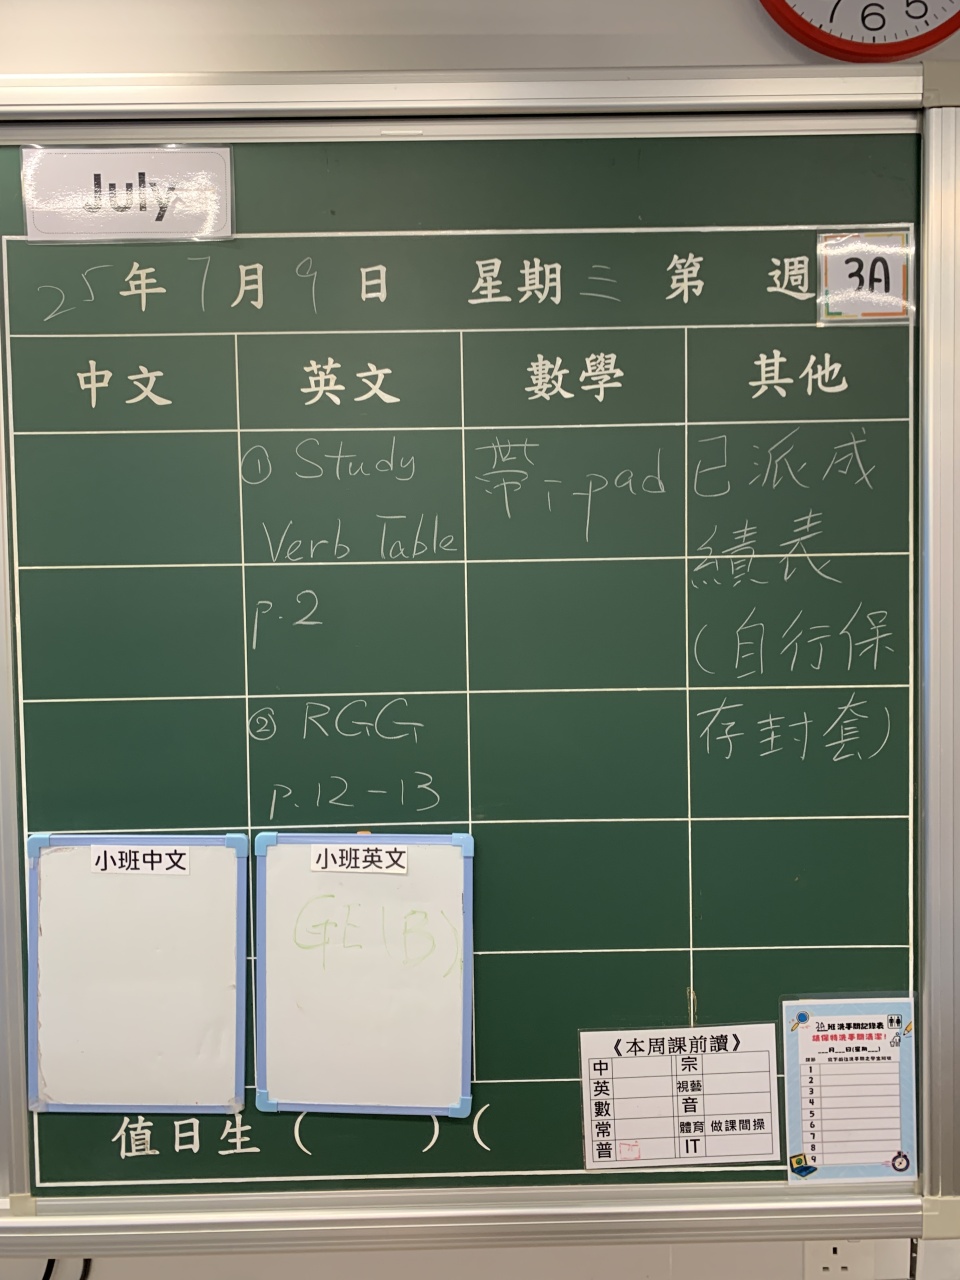 7 6 5
July
25年7月9日 星期三 第 週 3A
中文 英文 數學 其他
① Study
Verb Table
p.2
② RGG
p.12-13
帶i-pad
已派成
績表
(自行保
存封套)
小班中文
小班英文
GE(B)
值日生( )(
《本周課前讀》
中 宗
英 視藝
數 音
常 體育 做課間操
普 IT
3A 班洗手間記錄表
請保持洗手間清潔!
___月___日(星期___)
1
2
3
4
5
6
7
8
9